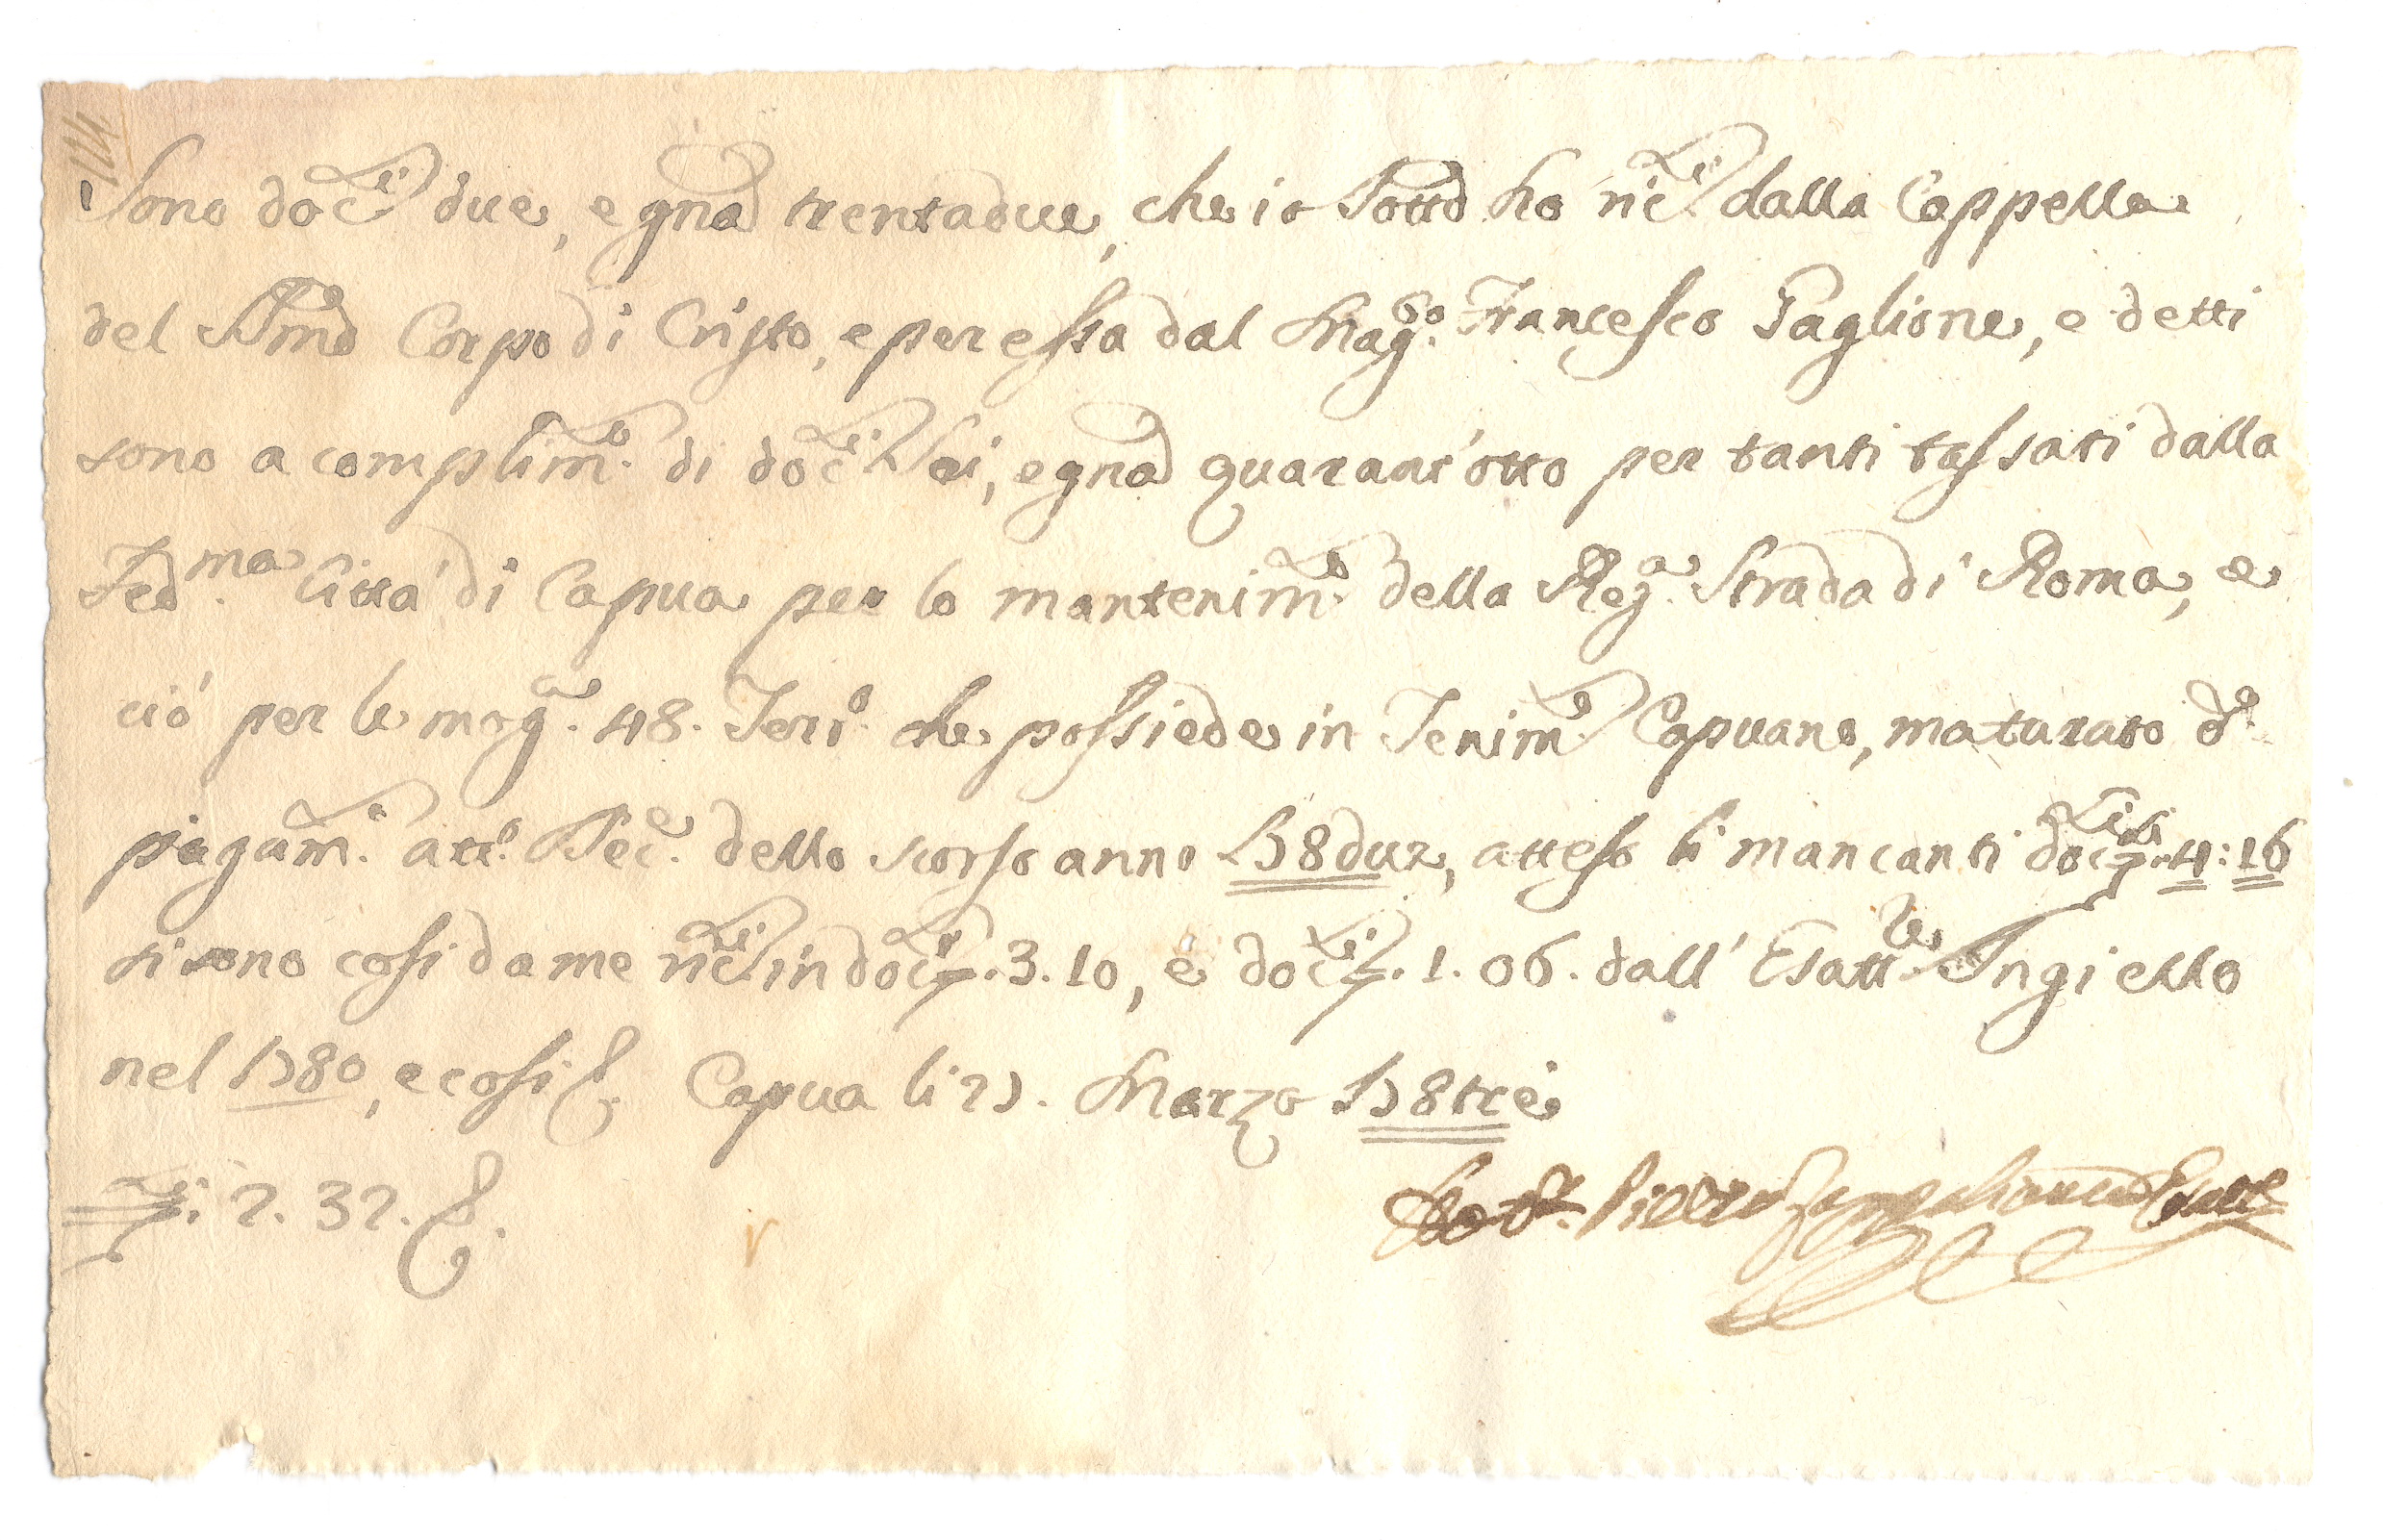 114
Sono docti due, e gna trentadue, che io Sotto ho ricti dalla Cappella
del SSmo Corpo di Cristo, e per essa dal Mag.co Francesco Paglione, e detti
sono a complim.to di docti Sei, e gna quarant'otto per tanti tassati dalla
Fed.ma Città di Capua per lo mantenim.to della Reg.a Strada di Roma, e
ciò per le mog.a 48. che possiede in Tenim.to Capuano, maturato d.o
pagam.to dello scorso anno 178due, atteso li mancanti docti 4:16
si sono cosi da me ricti in docti. 3. 10, e docti. 1. 06. dall' Esatt.re Ingiello
nel 1780, e cosi Capua li 27. Marzo 178tre
2. 32.
Pietro